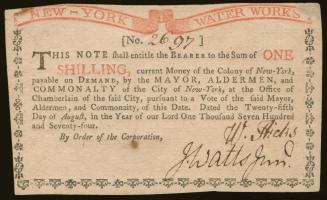 NEW-YORK WATER WORKS
[No. 2697]
THIS NOTE shall entitle the BEARER to the Sum of ONE
SHILLING, current Money of the Colony of New-York,
payable on DEMAND, by the MAYOR, ALDERMEN, and
COMMONALTY of the City of New-York, at the Office of
Chamberlain of the said City, pursuant to a Vote of the said Mayor,
Aldermen, and Commonalty, of this Date. Dated the Twenty-fifth
Day of August, in the Year of our Lord One Thousand Seven Hundred
and Seventy-four.
By Order of the Corporation,
JWatts Junr.